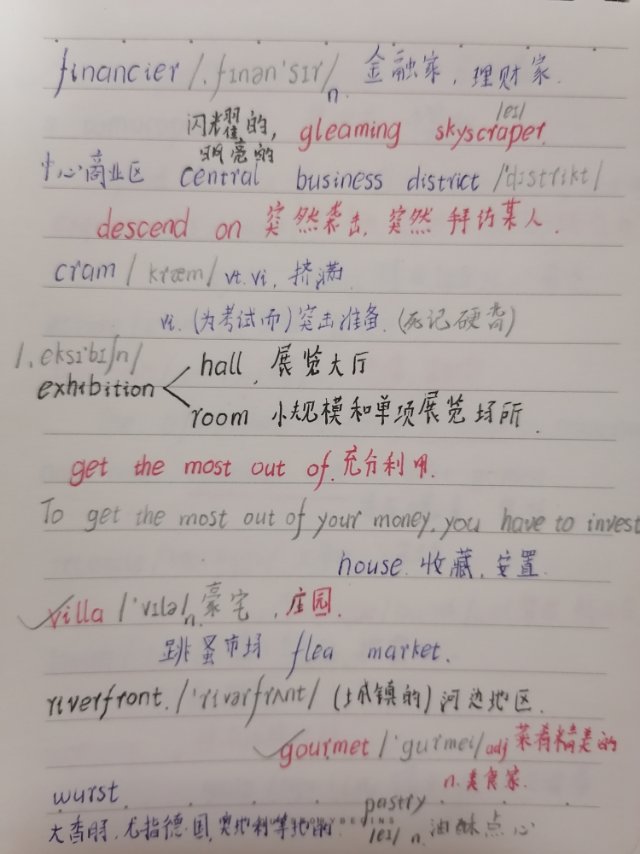 financier /ˌfɪnənˈsɪr/ n. 金融家, 理财家.
闪耀的, 明亮的 gleaming skyscraper /eɪ/
中心商业区 central business district /ˈdɪstrɪkt/
descend on 突然袭击, 突然拜访某人.
cram /kræm/ vt. vi. 挤满
vi. (为考试而)突击准备. (死记硬背)
/ˌeksɪˈbɪʃn/
exhibition
hall. 展览大厅
room 小规模和单项展览场所.
get the most out of. 充分利用.
To get the most out of your money, you have to invest
house. 收藏, 安置.
villa /ˈvɪlə/ n. 豪宅, 庄园.
跳蚤市场 flea market.
riverfront. /ˈrɪvərfrʌnt/ (城镇的)河边地区.
gourmet /ˈɡʊrmeɪ/ adj 菜肴精美的
n. 美食家.
wurst
大香肠, 尤指德国, 奥地利等地的.
pastry /eɪ/ n. 油酥点心